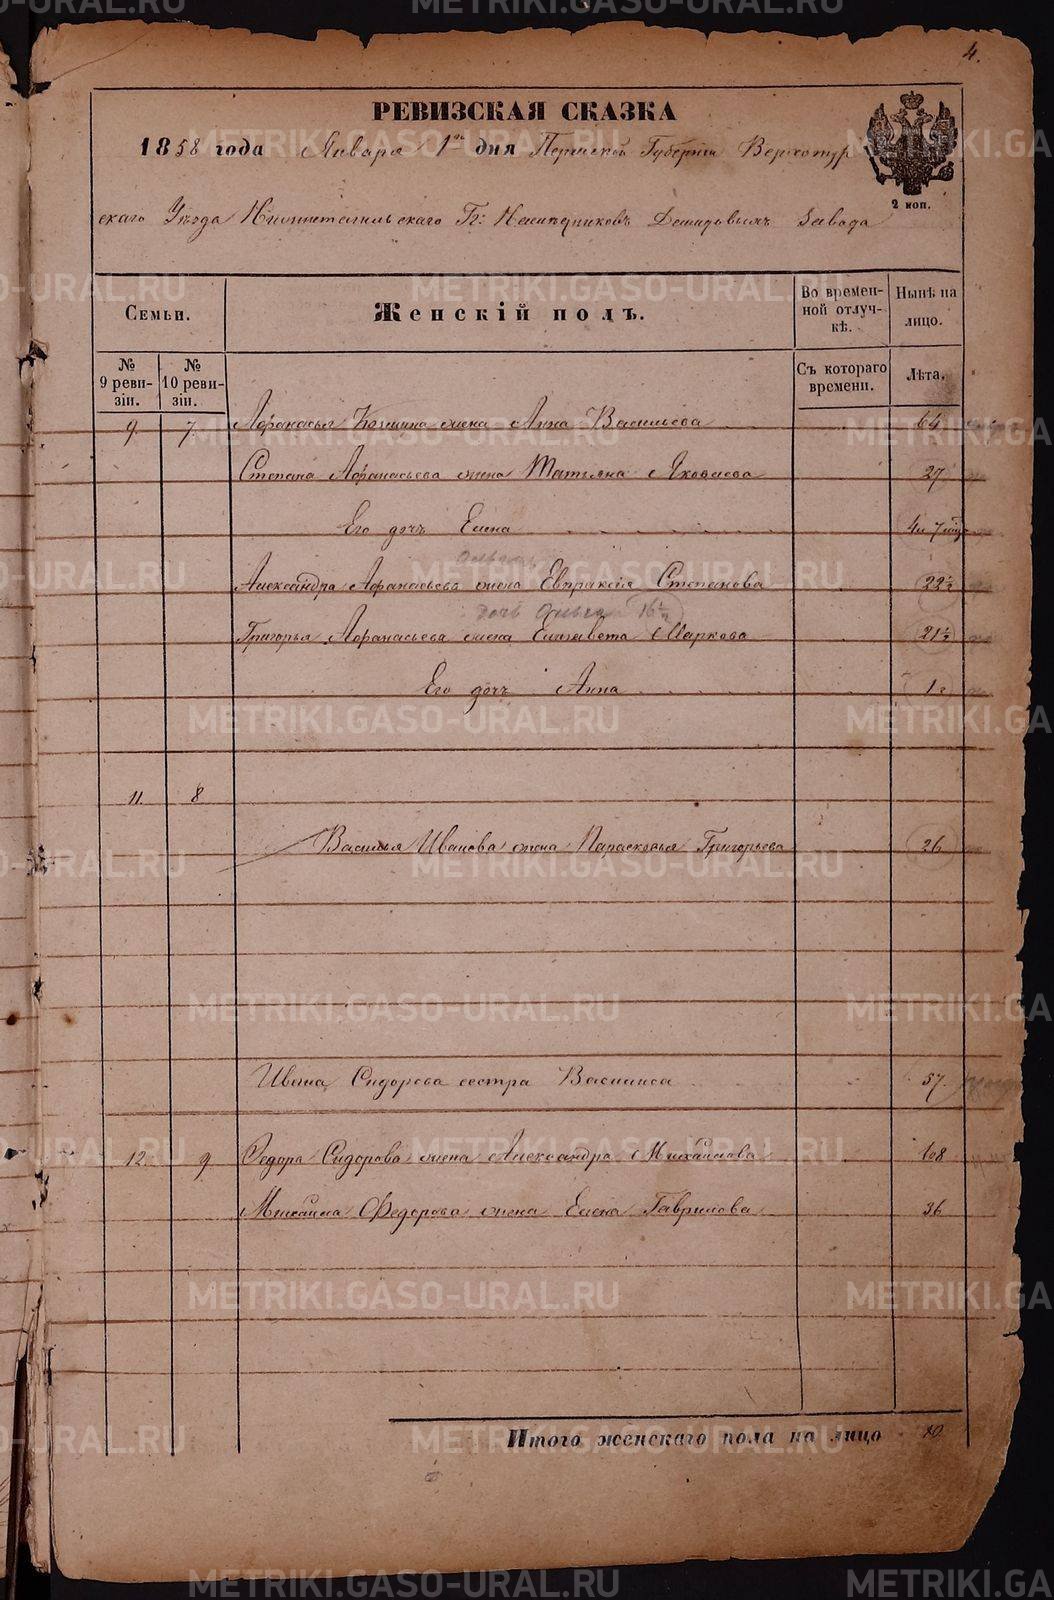 4.
РЕВИЗСКАЯ СКАЗКА
1858 года Января 1го дня Пермской Губернiи Верхотур
2 коп.
скаго Уѣзда Нижнетагильскаго Гг: Наслѣдниковъ Демидовыхъ Завода
Семьи.
Женскiй полъ.
Во времен-
ной отлуч-
кѣ.
Нынѣ на
лицо.
№
9 реви-
зiи.
№
10 реви-
зiи.
Съ котораго
времени.
Лѣта.
9. 7. Афанасья Козмина жена Анна Васильева 64
Степана Афанасьева жена Татьяна Яковлева 27
Его дочь Елена 4 и 7 мѣс
Александра Афанасьева жена Евпраксiя Степанова 22½
дочь Ольга 16½
Григорья Афанасьева жена Елизавета Маркова 21½
Его дочь Анна 1 г
11. 8
Василья Иванова жена Парасковья Григорьева 26
Ивана Сидорова сестра Василиса 57.
12. 9 Федора Сидорова жена Александра Михайлова 108
Михаила Федорова жена Елена Гаврилова 36
Итого женскаго пола на лицо 10
METRIKI.GASO-URAL.RU